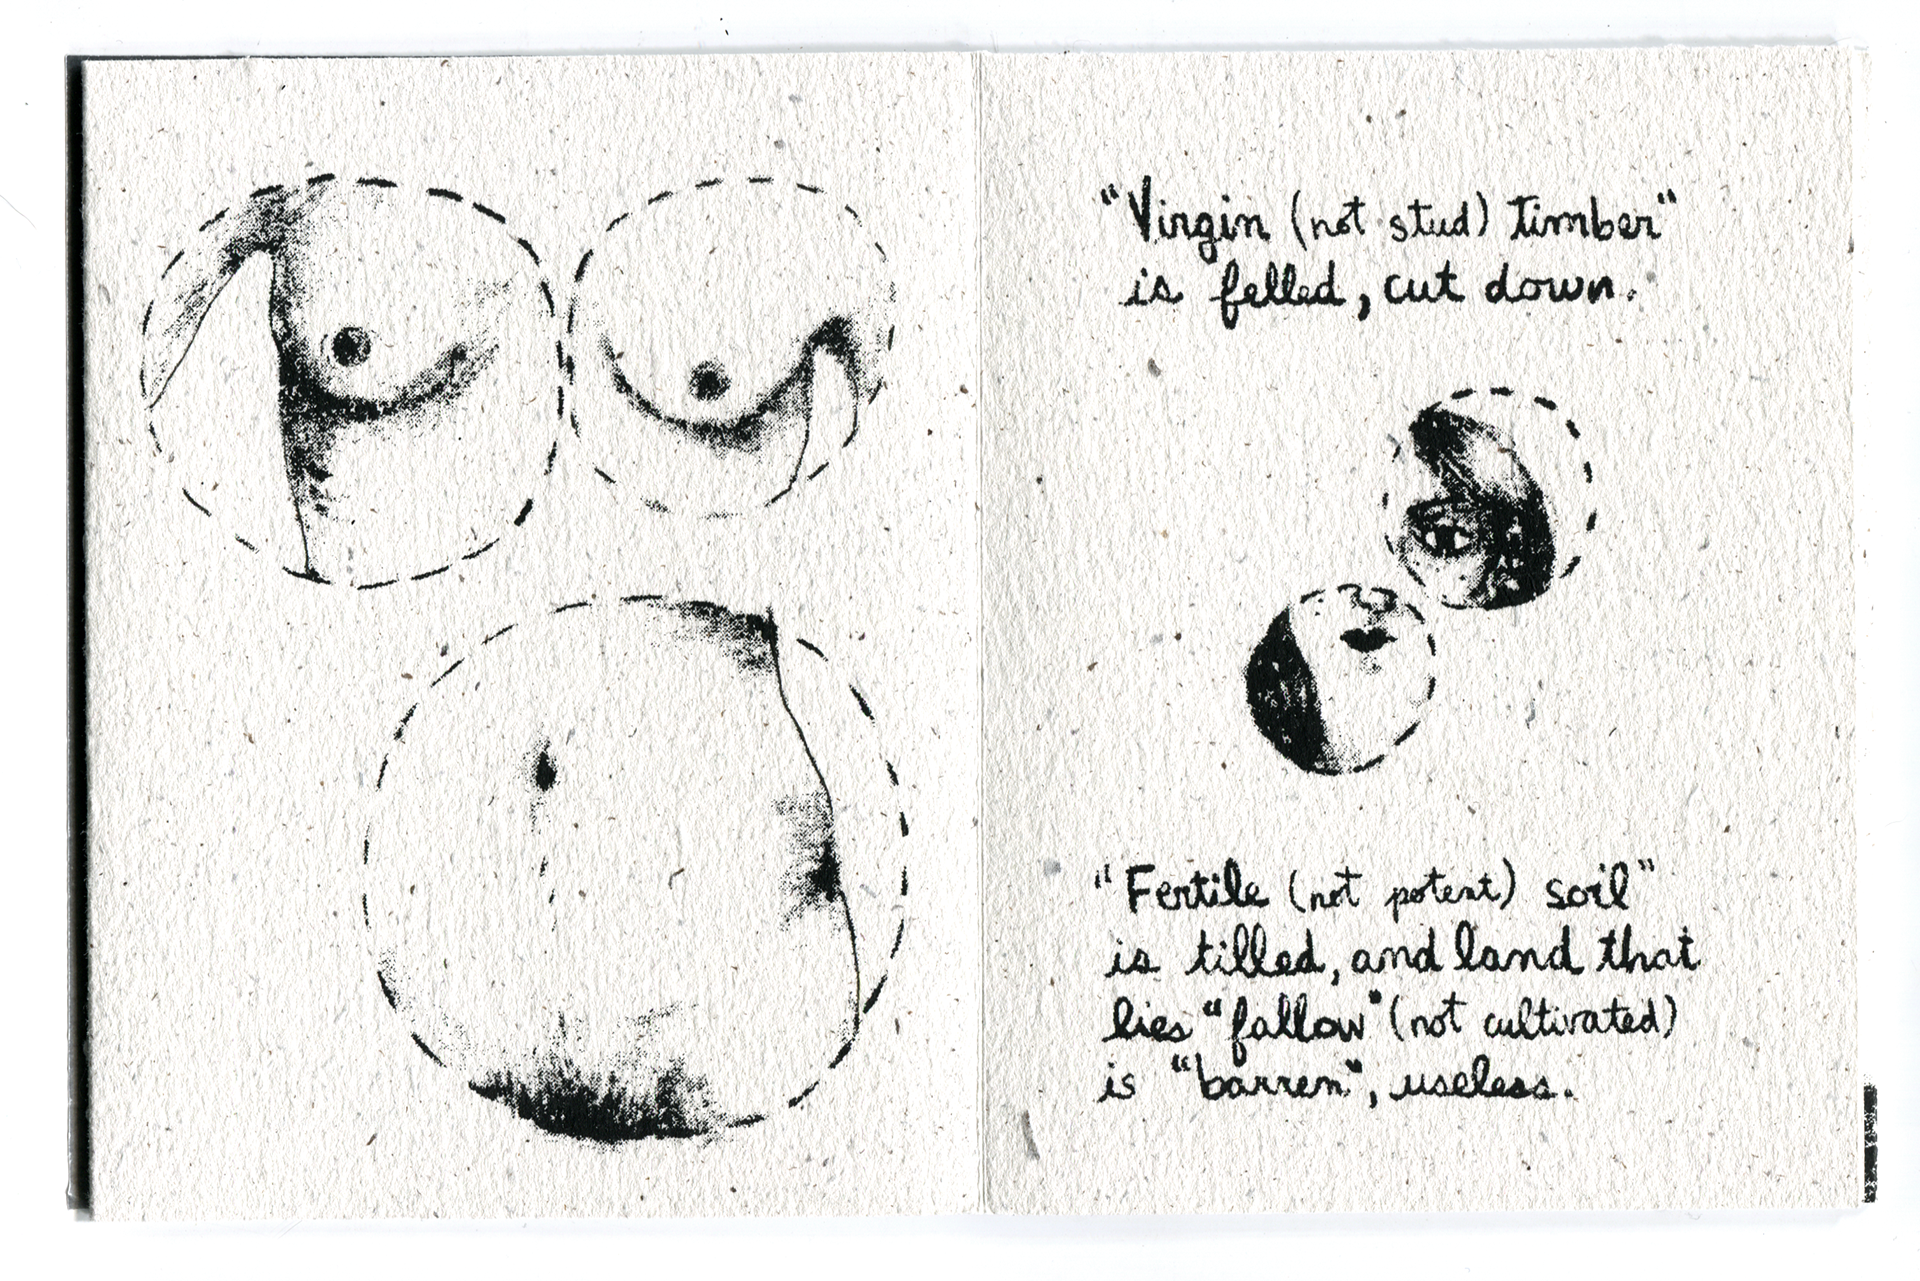 "Virgin (not stud) timber"
is felled, cut down.
"Fertile (not potent) soil"
is tilled, and land that
lies "fallow" (not cultivated)
is "barren", useless.